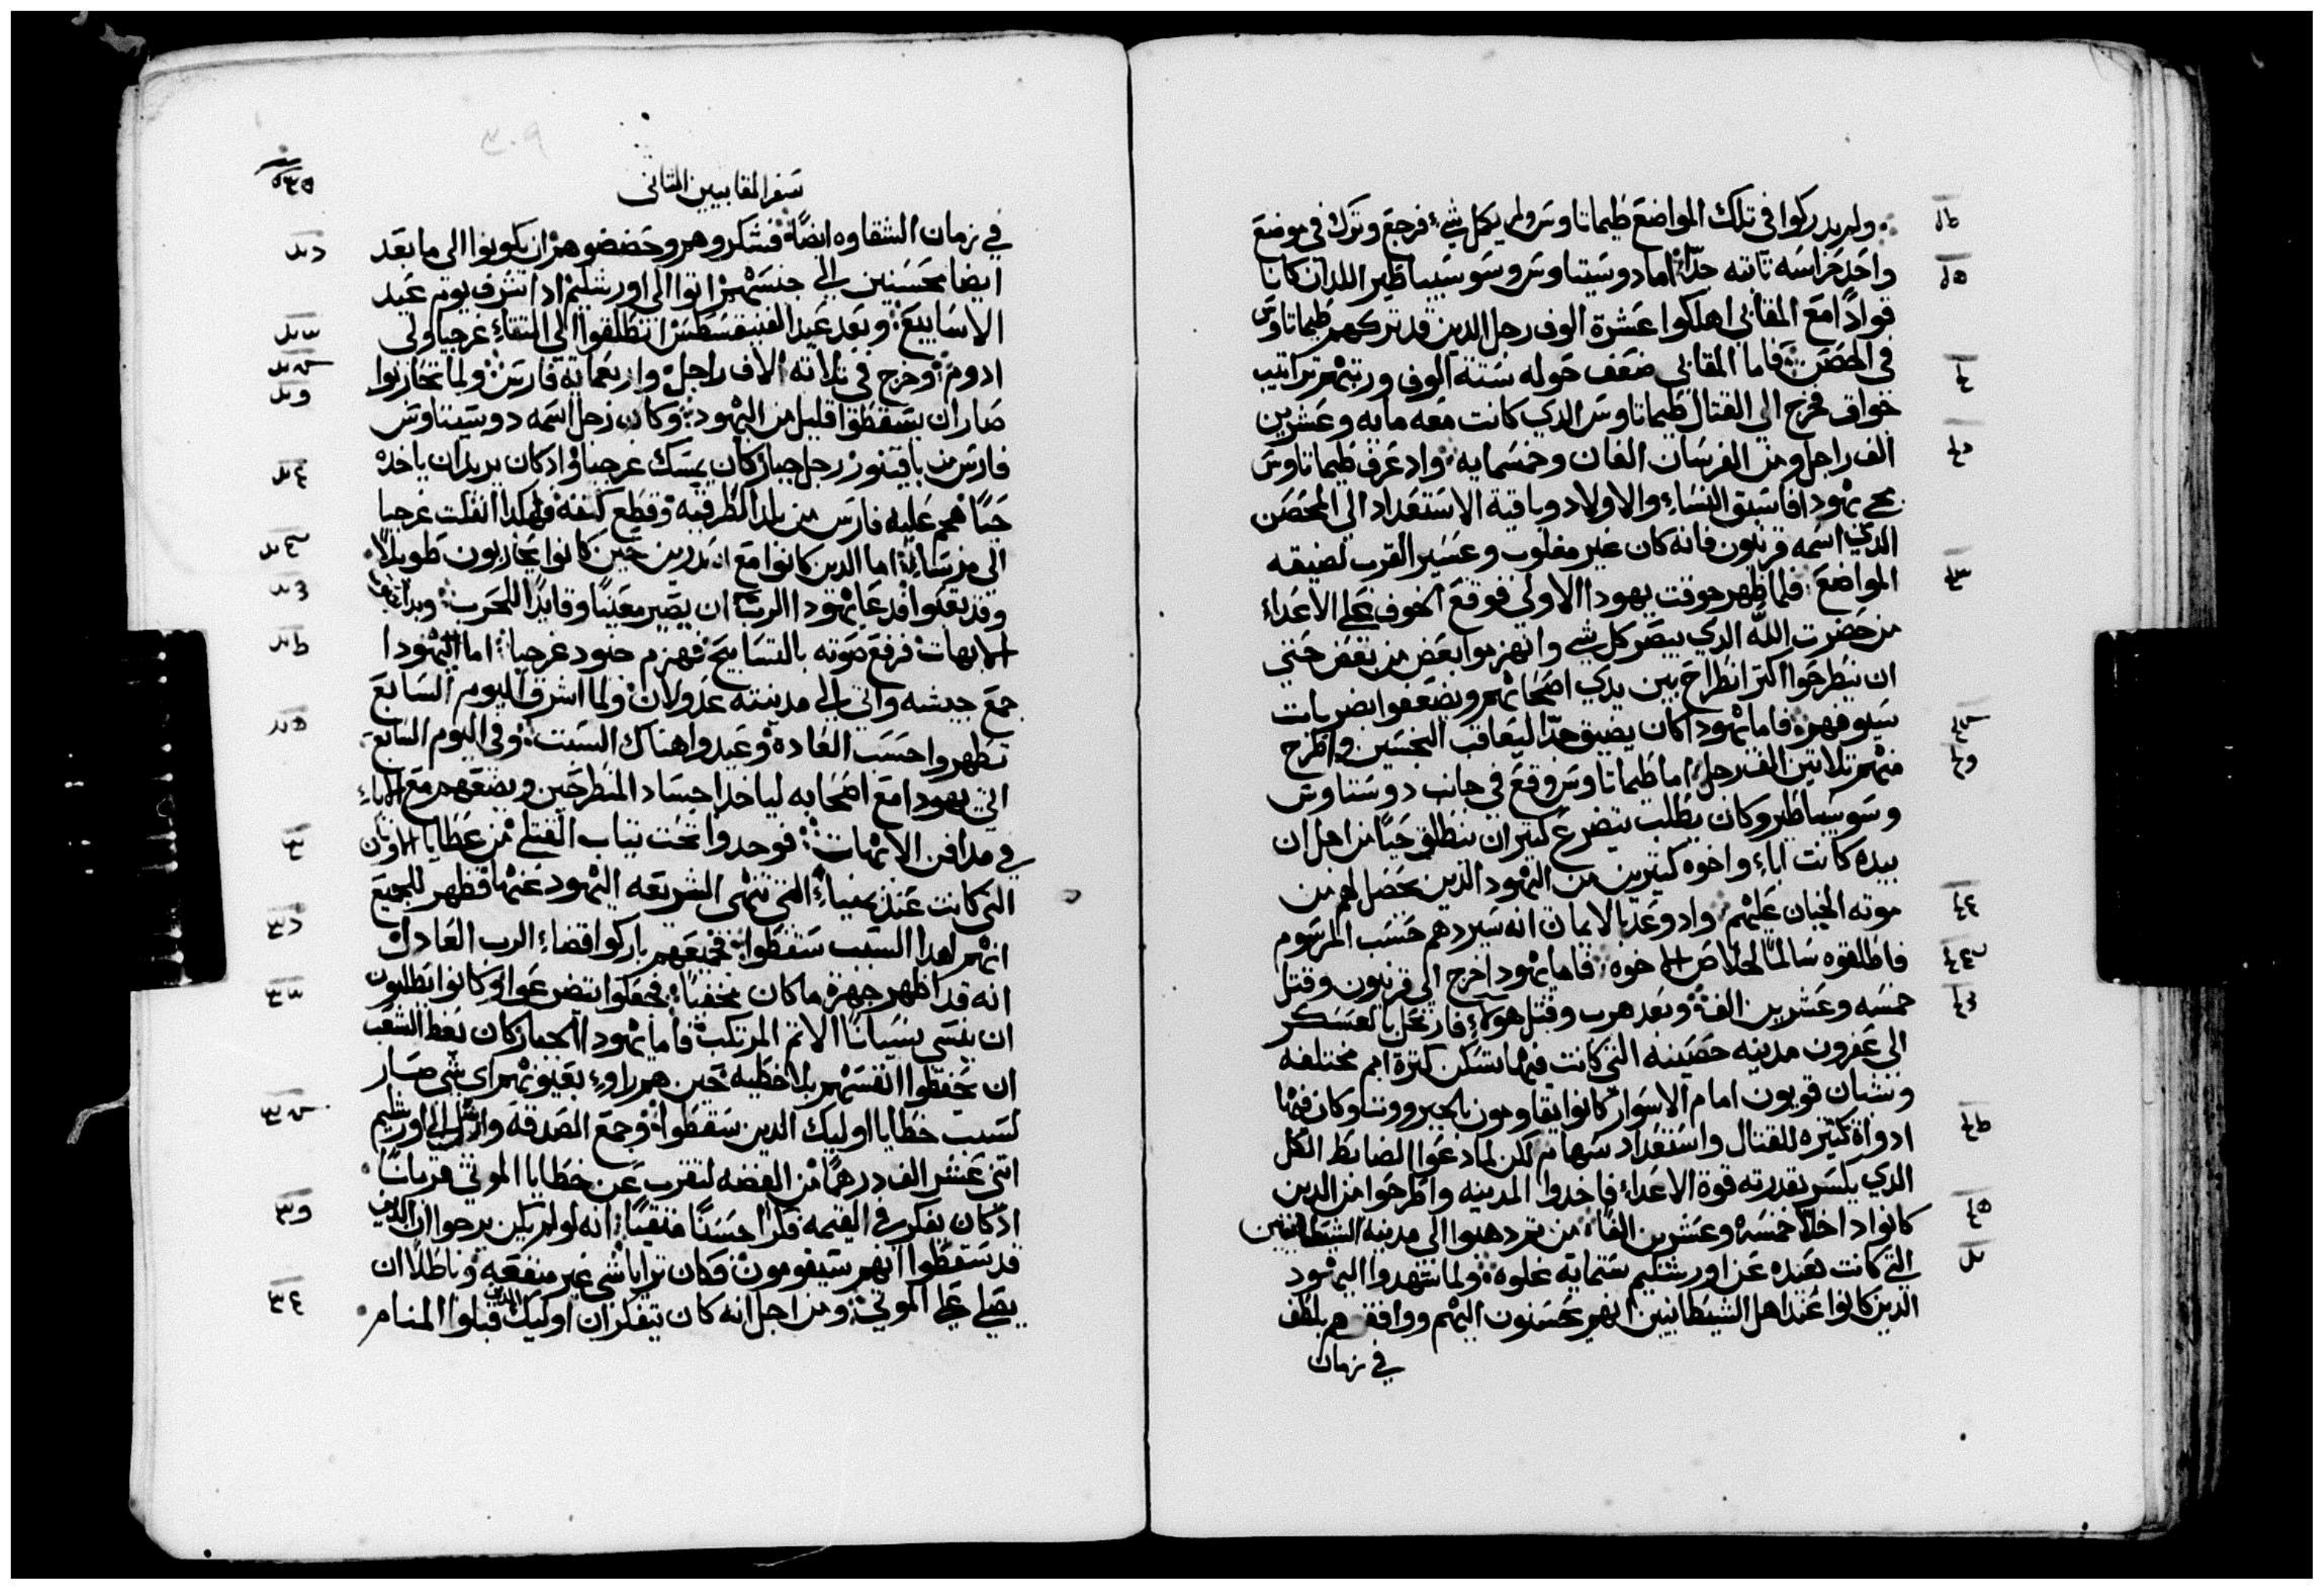 ولم يدركوا في تلك المواضع طيماتاوس ولم يكل شيء فرجع وترك في موضع
واحد حراسه تابته جدًا اما دوسيتاوس وسوسيباطير اللدان كانا
قوادًا مع المقابي اهلكوا عشرة الوف رجل الدين قد تركهم طيماتاوس
في الحصن فاما المقابي صفف حوله ستة الوف ورتبهم تراتيب
خواق فخرج الي القتال طيماتاوس الدي كانت معه مايه وعشرين
الف راجل ومن الفرسان الفان وخمسمايه واد عرف طيماتاوس
مجي يهودا فاسبق النساء والاولاد وباقية الاستعداد الي المحصن
الدي اسمه قرنيون فانه كان غير مغلوب وعسير القرب لضيقه
المواضع فلما ظهر جوقت يهودا الاولي فوقع الخوف علي الاعداء
من حضرت الله الدي يبصر كل شي وانهزموا بعض من بعض حتي
ان ينطرحوا اكتر انطراح بين يدي اصحابهم ويضعفوا بضربات
سيوفهم فاما يهودا كان يضيق جدًا ليعاقب النجسين واطرح
منهم تلاتين الف رجل اما طيماتاوس وقع في جانب دوستاوس
وسوسيباطير وكان يطلب بتضرع كتير ان ينطلق حيًا من اجل ان
بيده كانت اباء واخوه كتيرين من اليهود الدين يحصل لهم من
موته الخيان عليهم واد وعد بالايمان انه سيردهم حسب المرسوم
فاطلقوه سالمًا لخلاص الاخوه فاما يهودا خرج الي قرنيون وقتل
خمسه وعشرين الف وبعد هرب وقتل هولاء فارتحل بالعسكر
الي عفرون مدينه حصينه التي كانت فيها تسكن كترة امم مختلفه
ونشبان قويون امام الاسوار كانوا يقاومون بالجبرووت وكان فيها
ادواة كتيره للقتال واستعداد سهام لكن لما دعوا الضابط الكل
الدي يكسر بقدرته قوة الاعداء فاخدوا المدينه واطرحوا من الدين
كانوا داخلاً خمسه وعشرين الفًا من تم دهبوا الي مدينة الشيطانيين
التي كانت بعيده عن اورشليم ستمايه غلوه ولما شهدوا اليهود
الدين كانوا عند اهل الشيطانيين انهم يحسنون اليهم ووافقوهم بلطف
في زمان
سفر المقابيين التاني
في زمان الشقاوه ايضًا فشكروهم وحضضوهم ان يكونوا الي ما بعد
ايضا محسنين الي جنسهم اتوا الي اورشليم اد اشرف يوم عيد
الاسابيع وبعد عيد الفنيقسطس انطلقوا الي التقاء غرجيا ولي
ادوم وخرج في تلاته الاف راجل واربعماية فارس ولما تحاربوا
صار ان يسقطوا قليل من اليهود وكان رجل اسمه دوسيتاوس
فارس من باقينور رجل جبار كان يمسك غرجيا واد كان يريد ان ياخده
حيًا هجم عليه فارس من بلد الطرقيه وقطع كتفه فهكدا انفلت غرجيا
الي مرسا اما الدين كانوا مع اسدرين حين كانوا يحاربون طويلاً
وقد تعبوا فدعا يهودا الرب ان يصير معينًا وقايدًا للحرب وبدا بلغت
الابهات فرفع صوته بالتسابيح فهزم جنود غرجيا اما اليهودا
جمع جيشه واتي الي مدينته عدولان ولما اشرق اليوم السابع
تطهروا حسب العاده وعيدوا هناك السبت وفي اليوم التابع
اتي يهودا مع اصحابه لياخد اجساد المنطرحين ويضعهم مع الاباء
في مدافن الابهات فوجدوا تحت تياب القتلي من عطايا الاوتان
التي كانت عند يمنياء التي تنهي الشريعه اليهود عنها فظهر للجميع
انهم لهدا السبب سقطوا فجميعهم باركوا قضاء الرب العادل
انه قد اظهر جهرة ما كان مخفيًا فجعلوا يتضرعوا وكانوا يطلبون
ان ينسي نسيانًا الاتم المرتكب فاما يهودا الجبار كان يعظ الشعب
ان يحفظوا انفسهم بلا خطيه حين هم راوء بعيونهم اي شي صار
لسبب خطايا اوليك الدين سقطوا وجمع الصدقه وارسل الي اورشليم
اتني عشر الف درهمًا من الفضه لتقرب عن خطايا الموتي قربانًا
اد كان يفكر في القيمه فكرًا حسنًا متقيًا انه لو لم يكن يرجوا ان الدين
قد سقطوا انهم سيقومون فكان يرايا شي غير منفعه وباطلاً ان
يصلي علي الموتي ومن اجل انه كان يتفكر ان اوليك الدين قبلوا المنام